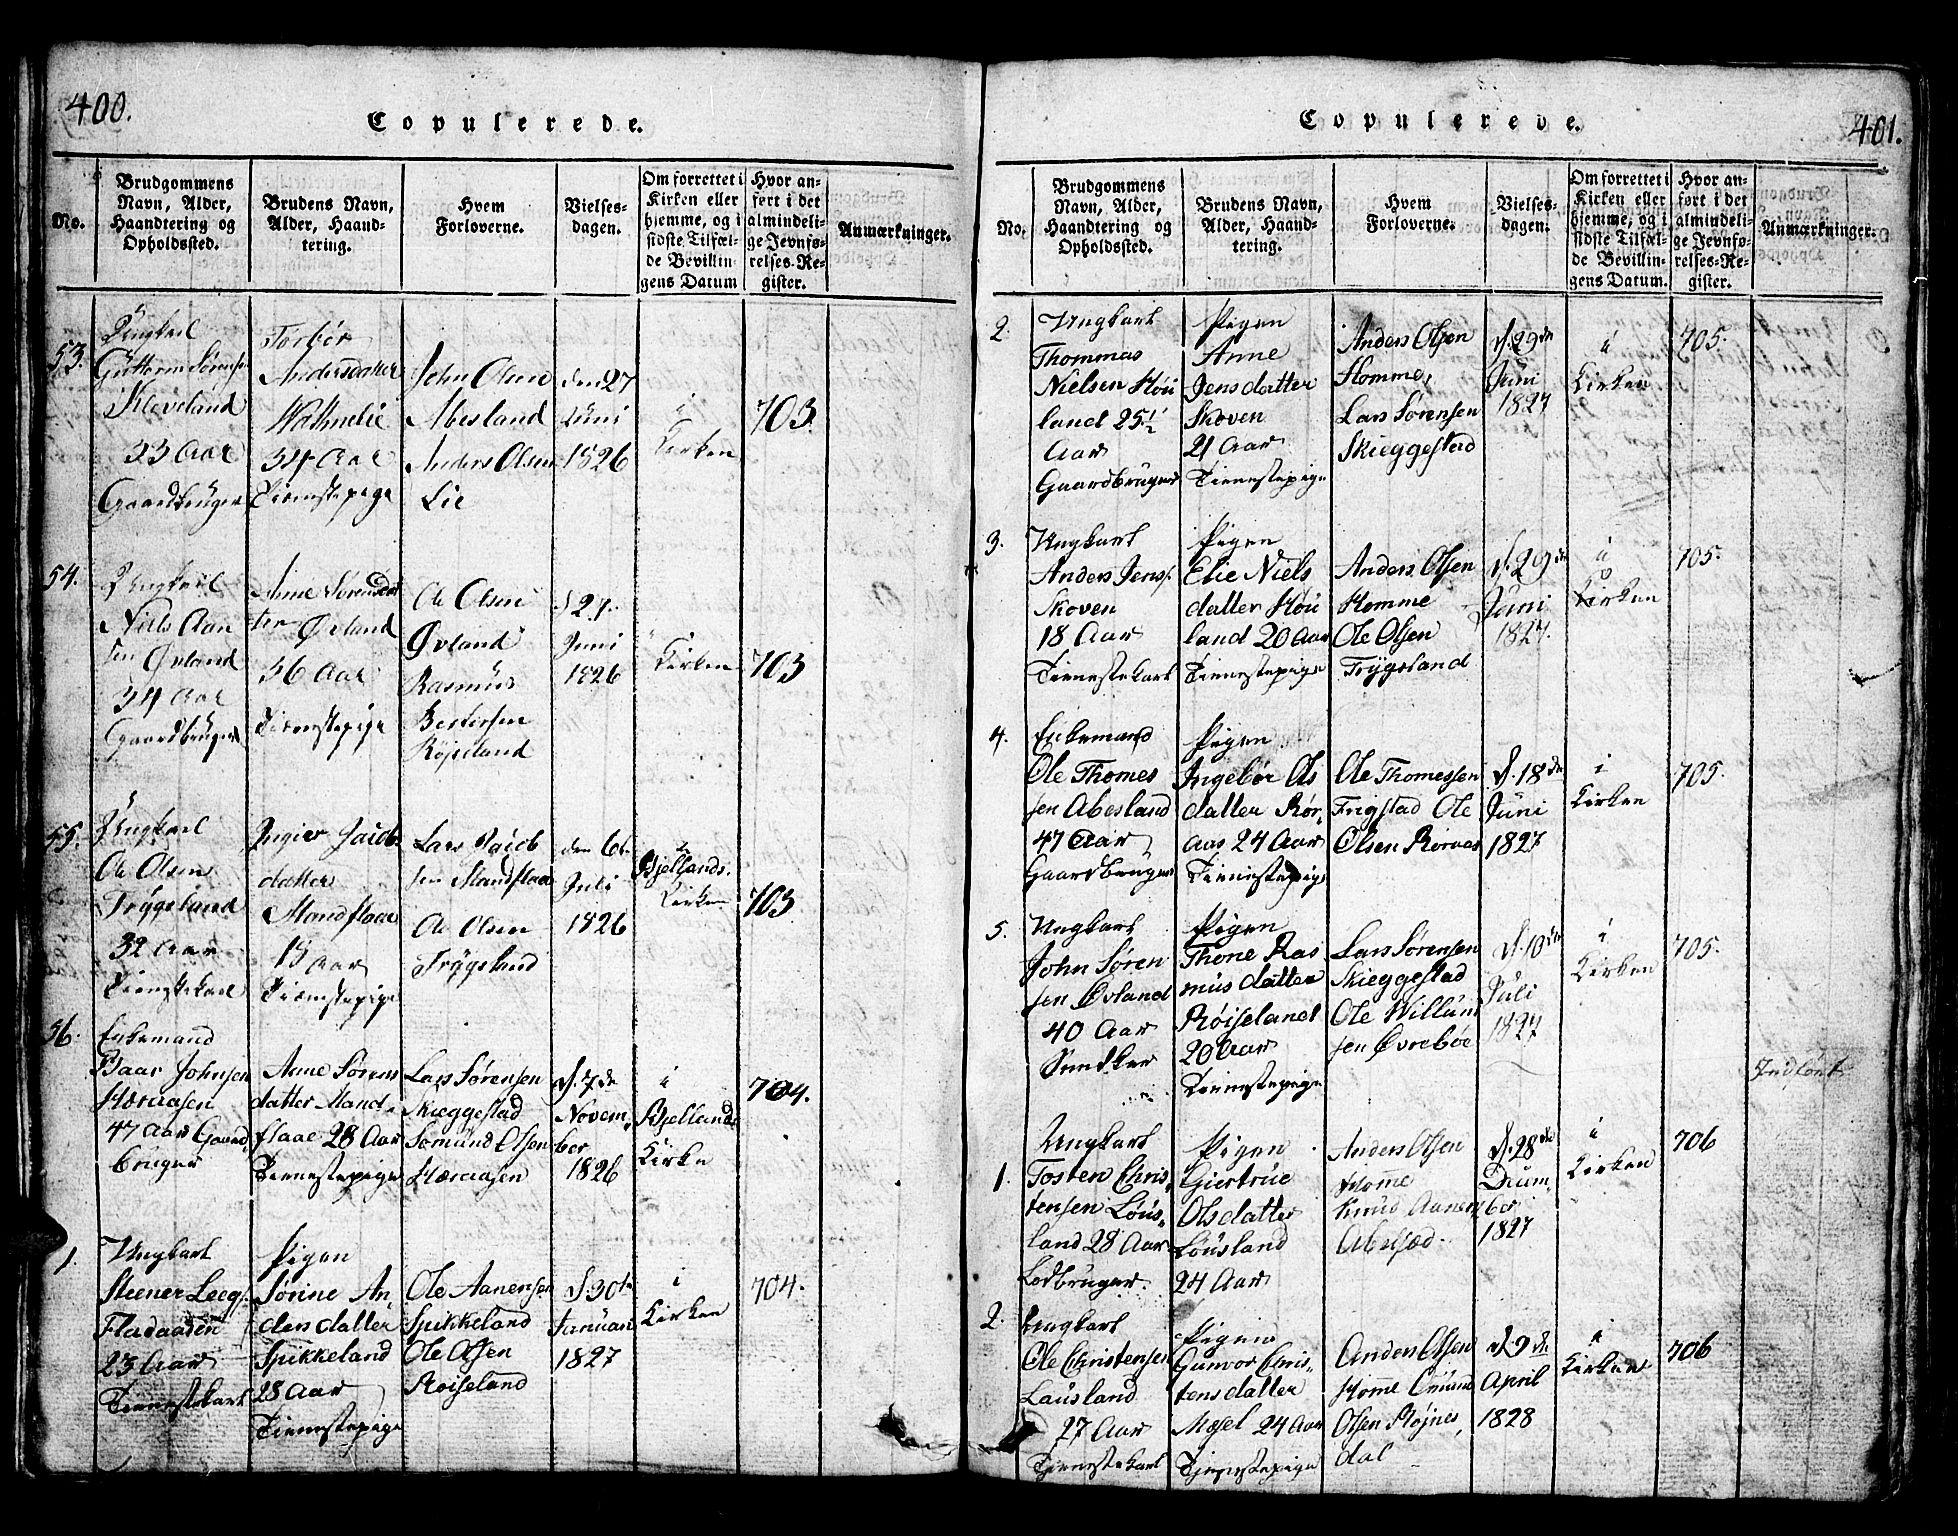 400.
Copulerede.
No.
Brudgommens
Navn, Alder,
Haandtering og
Opholdssted.
Brudens Navn,
Alder, Haand-
tering.
Hvem
Forloverne.
Vielses-
dagen.
Om forrettet i
Kirken eller
hjemme, og i
sidste Tilfæl-
de Bevillin-
gens Datum
Hvor an-
ført i det
almindeli-
ge Jevnfø-
relses-Re-
gister.
Anmærkninger.
53.
Ungkarl
Guttorm Sørens
Kleveland
33 Aar
Gaardbruger
Torbør
Andersdatter
34 Aar
Tienestepige
John Olsen
Abesland
Anders Olsen
Lie
den 27
Juni
1826
i
Kirken
703
54.
Ungkarl
Niels Aan
sen Øvland
34 Aar
Gaardbruger
Anne Sørensdat
ter Øvland
36 Aar
Tienestepige
Ole Olsen
Øvland
Rasmus
Røiseland
d 27.
Juni
1826
i
Kirken
703
55.
Ungkarl
Ole Olsen
Trygsland
32 Aar
Tienestekarl
Ingier Jacobs
datter
Mandflaae
Aar
Tienestepige
Lars Jacob
sen Mandflaa
Ole Olsen
Trygsland
den 6te
Juli
1826
i
Bjellands
Kirken
703
56.
Enkemand
Baar Johnsen
Hæraasen
47 Aar Gaard
bruger
Anne Sørens
datter Mand-
flaae 28 Aar
Tienestepige
Lars Sørensen
Skieggestad
Gomund Olsen
Hæraasen
d. 7de
Novem-
ber
1826
i
Bjellands
Kirke
704.
1.
Ungkarl
Steener Leegs.
Fladaaden
23 Aar
Tienestekarl
Pigen
Sørine An
dersdatter
Spikkeland
28 Aar
Tienestepige
Ole Aanensen
Spikkeland
Ole Olsen
Røiseland
d. 30te
Januari
1827
i
Kirken
704.
Copulerede.
401.
No.
Brudgommens
Navn, Alder,
Haandtering og
Opholdssted.
Brudens Navn,
Alder, Haand-
tering.
Hvem
Forloverne.
Vielses-
dagen.
Om forrettet i
Kirken eller
hjemme, og i
sidste Tilfæl-
de Bevillin-
gens Datum.
Hvor an-
ført i det
almindeli-
ge Jevnfø-
relses-Re-
gister.
Anmærkninger.
2.
Ungkarl
Thommas
Nielsen Høu
land 25½
Aar
Gaardbruger
Pigen
Anne
Jensdatter
Skoven
21 Aar
Tienestepige
Anders Olsen
Homme,
Lars Sørensen
Skieggestad
d. 29de
Juni
1827
i
Kirken
705.
3.
Ungkarl
Anders Jens.
Skoven
18 Aar
Tienestekarl
Pigen
Elie Niels
datter Høu
land 20 Aar
Tienestepige
Anders Olsen
Homme
Ole Olsen
Trygsland
d. 29de
Juni
1827.
i
Kirken
705.
4.
Enkemand
Ole Thomes
sen Abesland
47 Aar
Gaardbruger
Pigen
Ingebør Ols
datter Rør-
aas 24 Aar
Tienestepige
Ole Thomessen
Frigstad Ole
Olsen Røraas
d. 18de
Juni
1827
i
Kirken
705.
5.
Ungkarl
John Søren
sen Øvland
40 Aar
Pigen
Thone Ras
mus datter
Røiseland
20 Aar
Tienestepige
Lars Sørensen
Skieggestad
Ole Willum
sen Øvrebøe
d. 10de
Juli
1827
i
Kirken
705.
Indført
1.
Ungkarl
Tosten Chris-
tensen Løus-
land 28 Aar
Lodbruger.
Pigen
Giertrue
Olsdatter
Lousland
24 Aar
Anders Olsen
Homme
Knud Aanens
d. 28de
ber
1827
i
Kirken
706
2.
Ungkarl
Ole Christensen
Lausland
27 Aar
Tienestekarl
Pigen
Gunvor Chris-
tensdatter
Mosel 24 Aar
Tjenestepige
Anders Olsen
Homme
Olsen Røjnes,
dal
d 9de
April
1828
i
Kirken
706